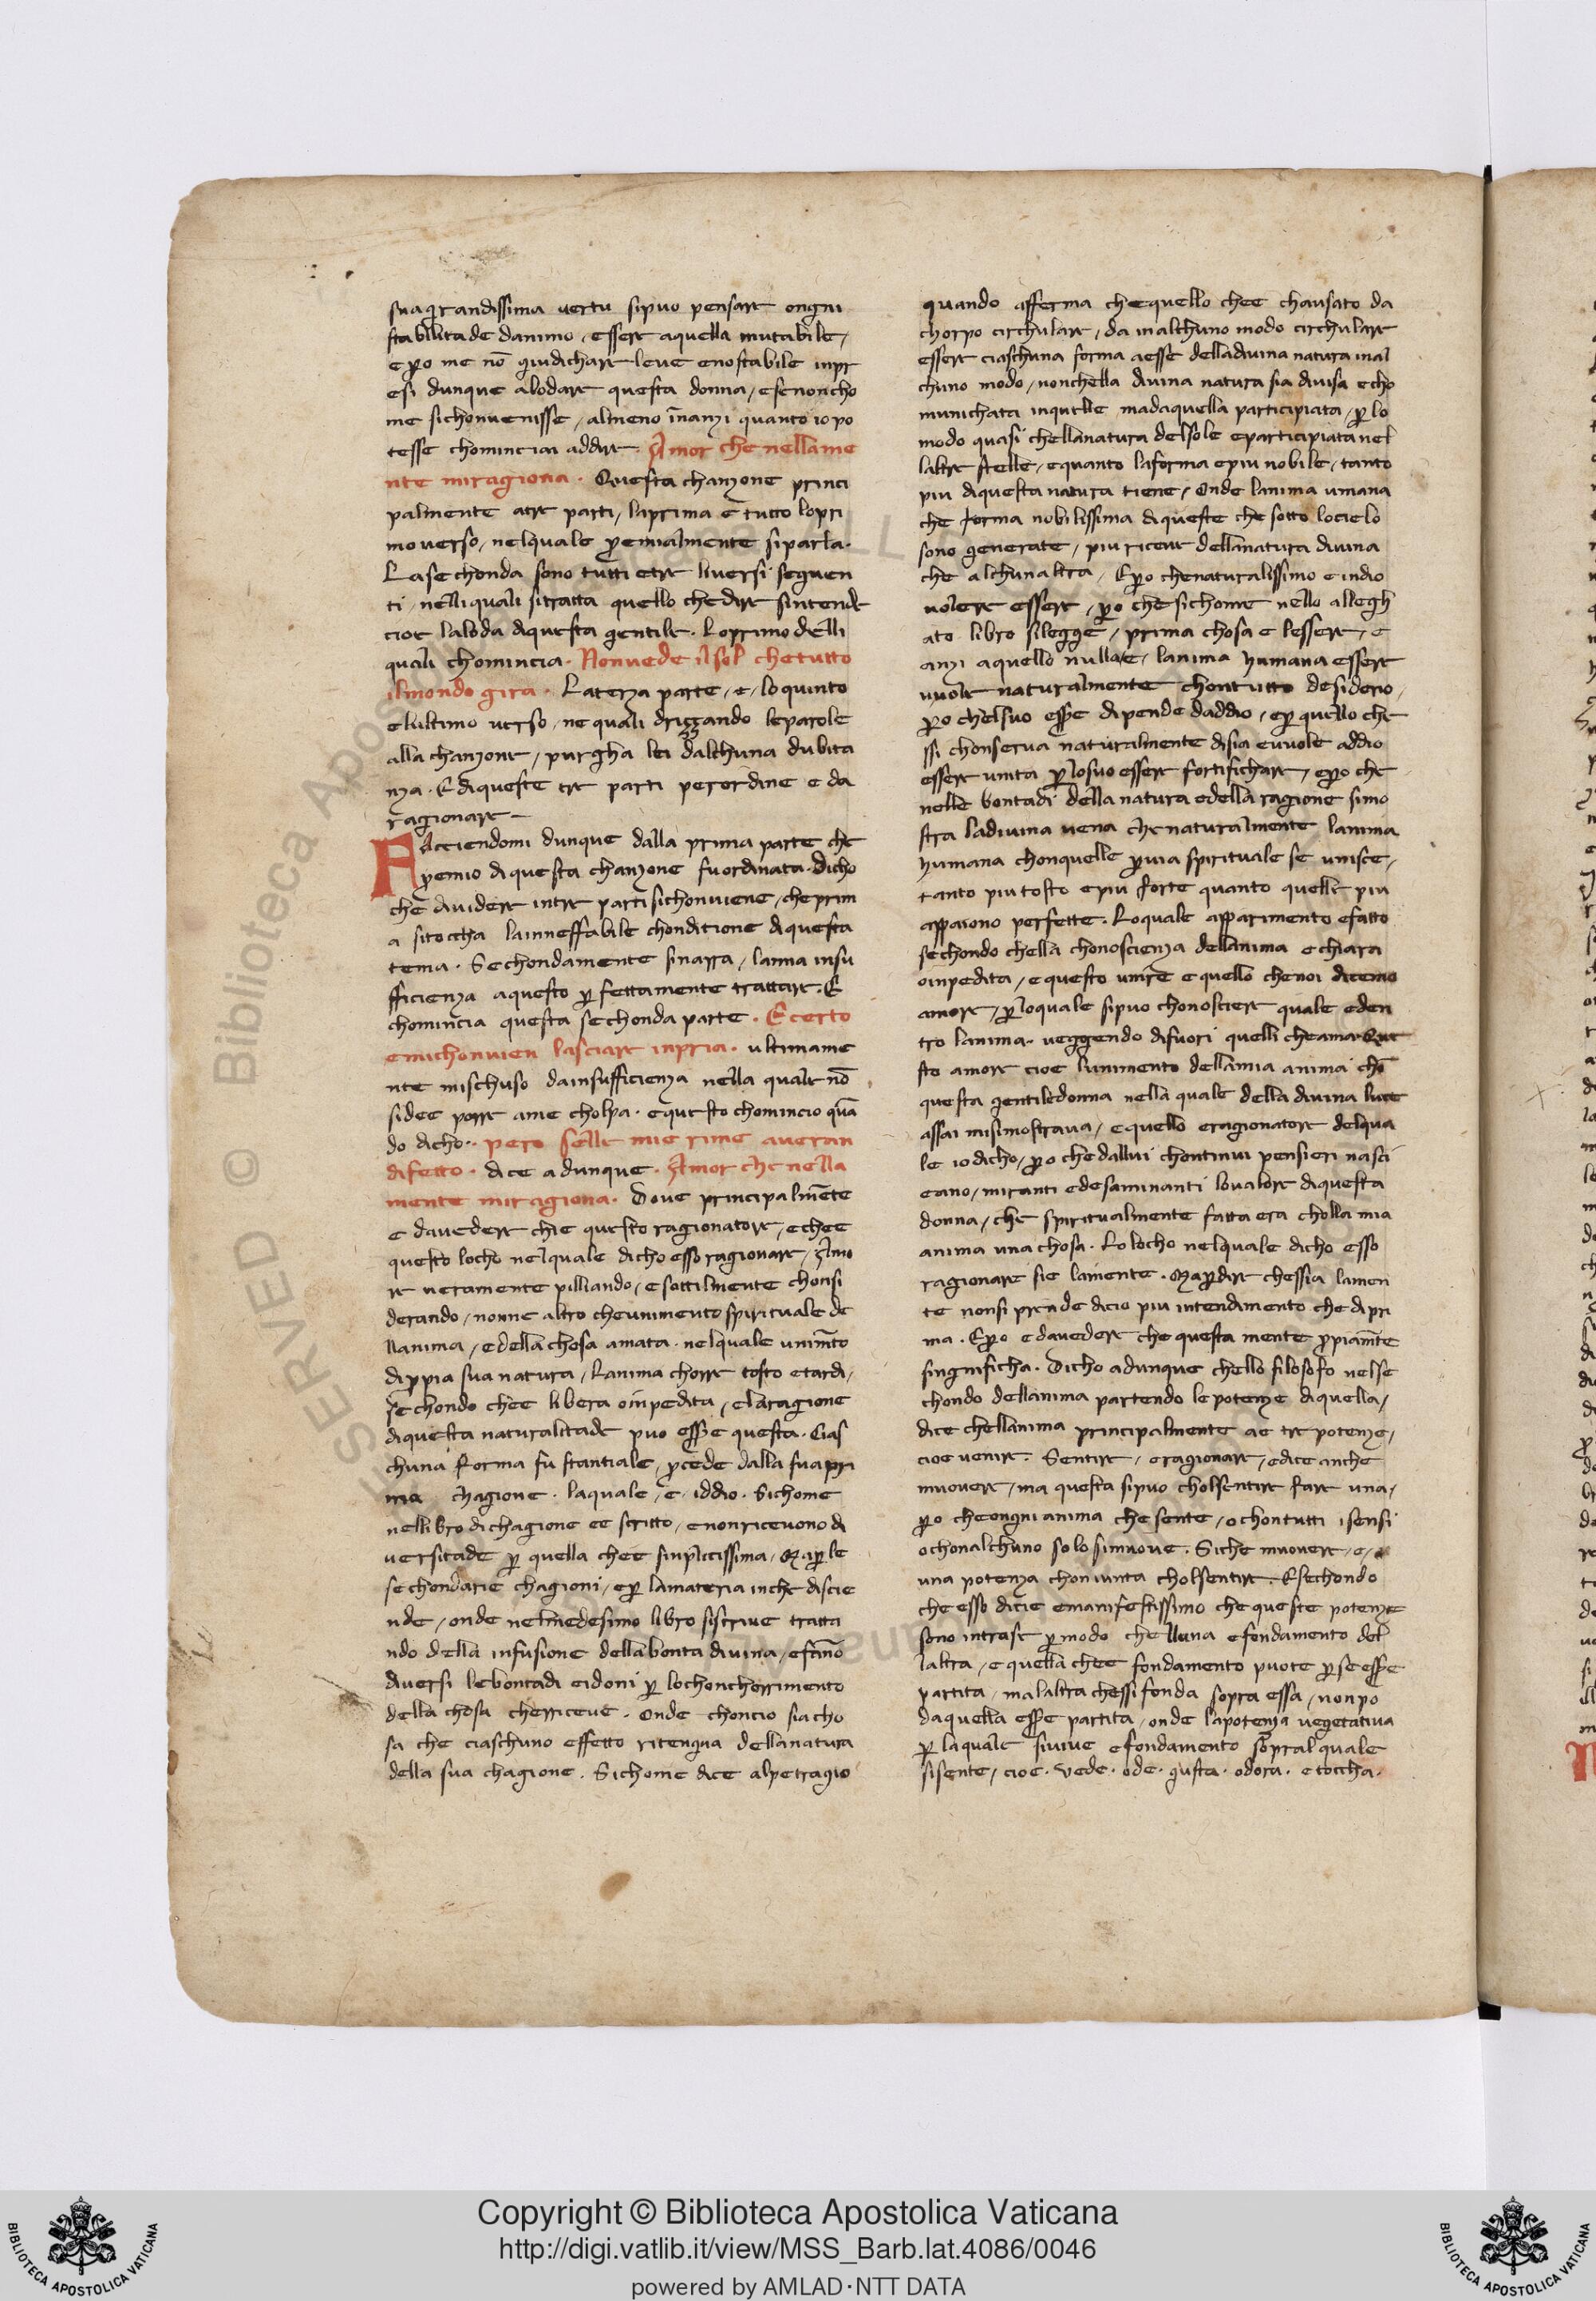 sua grandissima vertu sipuo pensare ongni
stabilitade danimo, essere aquella mutabile,
epero me nō giudichare leve enostabile inpr
esi dunque alodare questa donna, esenoncho
me sichonvenisse, almeno īnanzi quanto io po
tesse chominciai addire. Amor che nellame
nte miragiona. Questa chanzone princi
palmente atre parti, laprima e tutto lopri
moverso, nelquale proemialmente siparla.
Lasechonda sono tutti etre liversi seguen
ti, nelliquali sitratta quello chedire sintende
cioe laloda diquesta gentile. Loprimo delli
quali chomincia. Nonvede ilsol chetutto
ilmondo gira. Laterza parte, e, loquinto
elultimo verso, nequali drizzando leparole
alla chanzone, purgha lei dalchuna dubita
nza. Ediqueste tre parti perordine e da
ragionare
Acciendomi dunque dalla prima parte che
proemio diquesta chanzone fuordinata. dicho
che dividere intre parti sichonviene, cheprim
a sitoccha lainneffabile chonditione diquesta
tema. Sechondamente sinarra, lamia insu
fficienza aquesto perfettamente trattare. E
chomincia questa sechonda parte. Ecerto
emichonvien lasciare inpria. ultimame
nte mischuso dainsufficienza nella quale nō
sidee porre ame cholpa. equesto chomincio quā
do dicho. pero selle mie rime averan
difetto. dice adunque. Amor che nella
mente miragiona. Dove principalmēte
e davedere chie questo ragionatore, echee
questo locho nelquale dicho esso ragionare, Amo
re veramente pilliando, esottilmente chonsi
derando, nonne altro cheunimento spirituale de
llanima, edella chosa amata. nelquale unimēto
dipropia sua natura, Lanima chorre tosto etardi,
sechondo chee libera oinpedita, elaragione
diquesta naturalitade puo essere questa. Cias
chuna forma sustantiale, procede dalla suapri
ma chagione. laquale, e iddio. Sichome
nellibro dichagione ee scritto, enonricevono di
versitade per quella chee sinplicissima, Maperle
sechondarie chagioni, eper lamateria inche discie
nde, onde nelmedesimo libro siscrive tratta
ndo della infusione dellabonta divina, efāno
diversi lebontadi eidoni per lochonchorrimento
della chosa cherriceve. Onde choncio siacho
sa che ciaschuno effetto ritengna dellanatura
della sua chagione. Sichome dice alpetragio
quando afferma chequello chee chausato da
chorpo circhulare, da inalchuno modo circhulare
essere ciaschuna forma aesse delladivina natura inal
chuno modo, nonchella divina natura sia divisa echo
munichata inquelle madaquella participiata, per lo
modo quasi chellanatura delsole eparticipiatanel
laltre stelle, equanto laforma epiu nobile, tanto
piu diquesta natura tiene, Onde lanima umana
che forma nobilissima diqueste che sotto locielo
sono generate, piu riceve dellanatura divina
che alchunaltra, Epero chenaturalissimo e indio
volere essere, pero chesichome nello allegh
ato libro silegge, prima chosa e lessere, e
anzi aquello nullae, lanima humana essere
vuole naturalmente chontutto desiderio,
pero chelsuo essere dipende daddio, eper quello che
ssi chonserva naturalmente disia evuole addio
essere unita per losuo essere fortifichare, epero che
nelle bontadi della natura edella ragione simo
stra ladivina vena che naturalmente lanima
humana chonquelle pervia spirituale se unisce,
tanto piutosto epiu forte quanto quelle piu
appaiono perfette. Loquale apparimento efatto
sechondo chella chonoscienza dellanima echiara
oinpedita, equesto unire equello chenoi dicemo
amore, per loquale sipuo chonosciere quale eden
tro lanima. veggendo difuori quelli cheama. Que
sto amore cioe lunimento dellamia anima chō
questa gentiledonna nella quale della divina luce
assai misimostrava, equello eragionatore delqua
le iodicho, pero chedallui chontinui pensieri nasci
eano, miranti edesaminanti lovalore diquesta
donna, che spiritualmente fatta era cholla mia
anima una chosa. Lolocho nelquale dicho esso
ragionare sie lamente. Maperdire chessia lamen
te nonsi prende dicio piu intendimento che dipri
ma. Epero edavedere che questa mente propiamēte
singnificha. Dicho adunque chello filosofo nelse
chondo dellanima partendo lepotenze diquella,
dice chellanima principalmente ae tre potenze,
cioe venire. Sentire, eragionare, edice anche
muovere, ma questa sipuo cholsentire fare una,
pero cheongni anima che sente, ochontutti isensi
ochonalchuno solo simuove. Siche muovere, e,
una potenza chongiunta cholsentire. Esechondo
che esso dicie emanifestissimo che queste potenze
sono intrase per modo chelluna efondamento del
laltra, equella chee fondamento puote perse essere
partita, malaltra chessi fonda sopra essa, nonpo
daquella essere partita, onde lapotenza vegetativa
per laquale sivive efondamento sopralquale
sisente, cioe. vede. ode. gusta. odora. etoccha.
Copyright © Biblioteca Apostolica Vaticana
http://digi.vatlib.it/view/MSS_Barb.lat.4086/0046
powered by AMLAD·NTT DATA
BIBLIOTECA APOSTOLICA VATICANA
BIBLIOTECA APOSTOLICA VATICANA